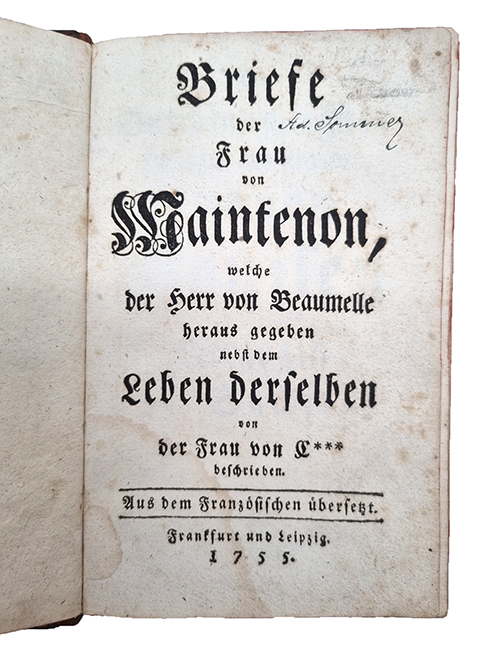 Briefe
der
Ad. Sommer
Frau
von
Maintenon,
welche
der Herr von Beaumelle
heraus gegeben
nebſt dem
Leben derſelben
von
der Frau von C***
beſchrieben.
Aus dem Franzöſiſchen überſetzt.
Frankfurt und Leipzig.
1755.